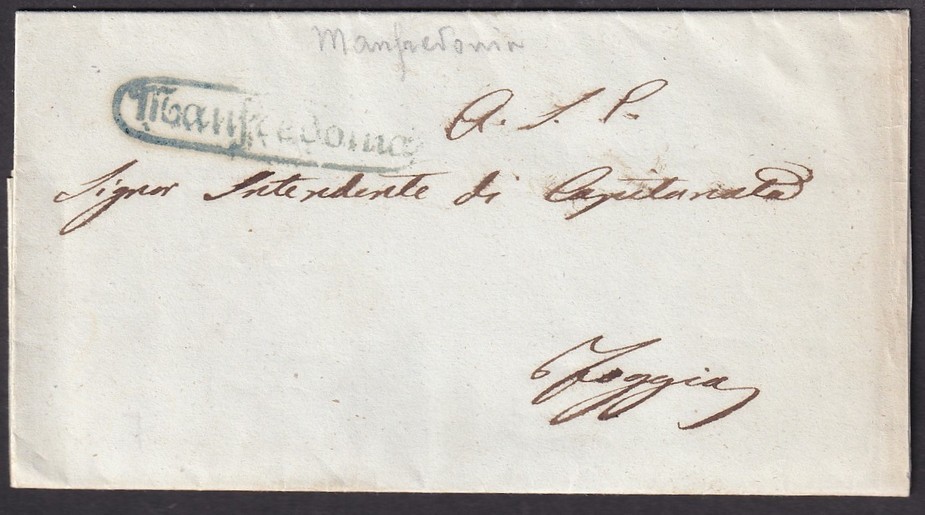 Manfredonia
Manfredonia
A. S. E.
Signor Intendente di Capitanata
Foggia